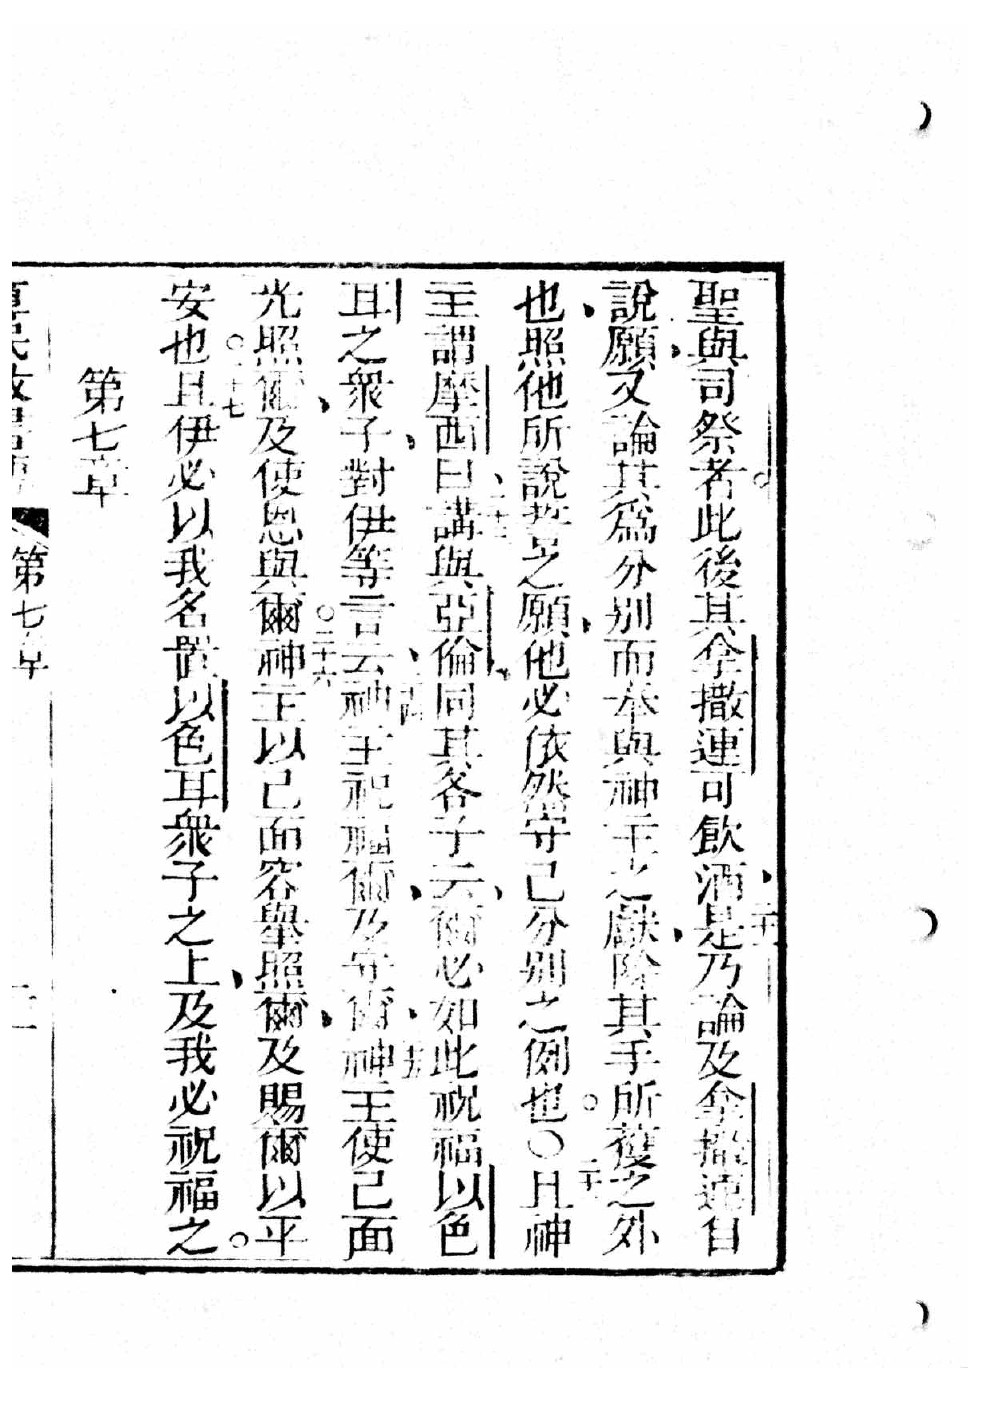 聖與司祭者此後其拿撒連可飲酒是乃論及拿撒連自
說願又論其為分別而奉與神主之獻除其手所獲之外
也照他所說誓之願他必依然守己分別之例也〇且神
主謂摩西曰講與亞倫同其各子云爾必如此祝福以色
耳之衆子對伊等言云神主祝福爾及守爾神主使己面
光照爾及使恩與爾神主以己面容舉照爾及賜爾以平
安也且伊必以我名置以色耳衆子之上及我必祝福之
第七章
第七章